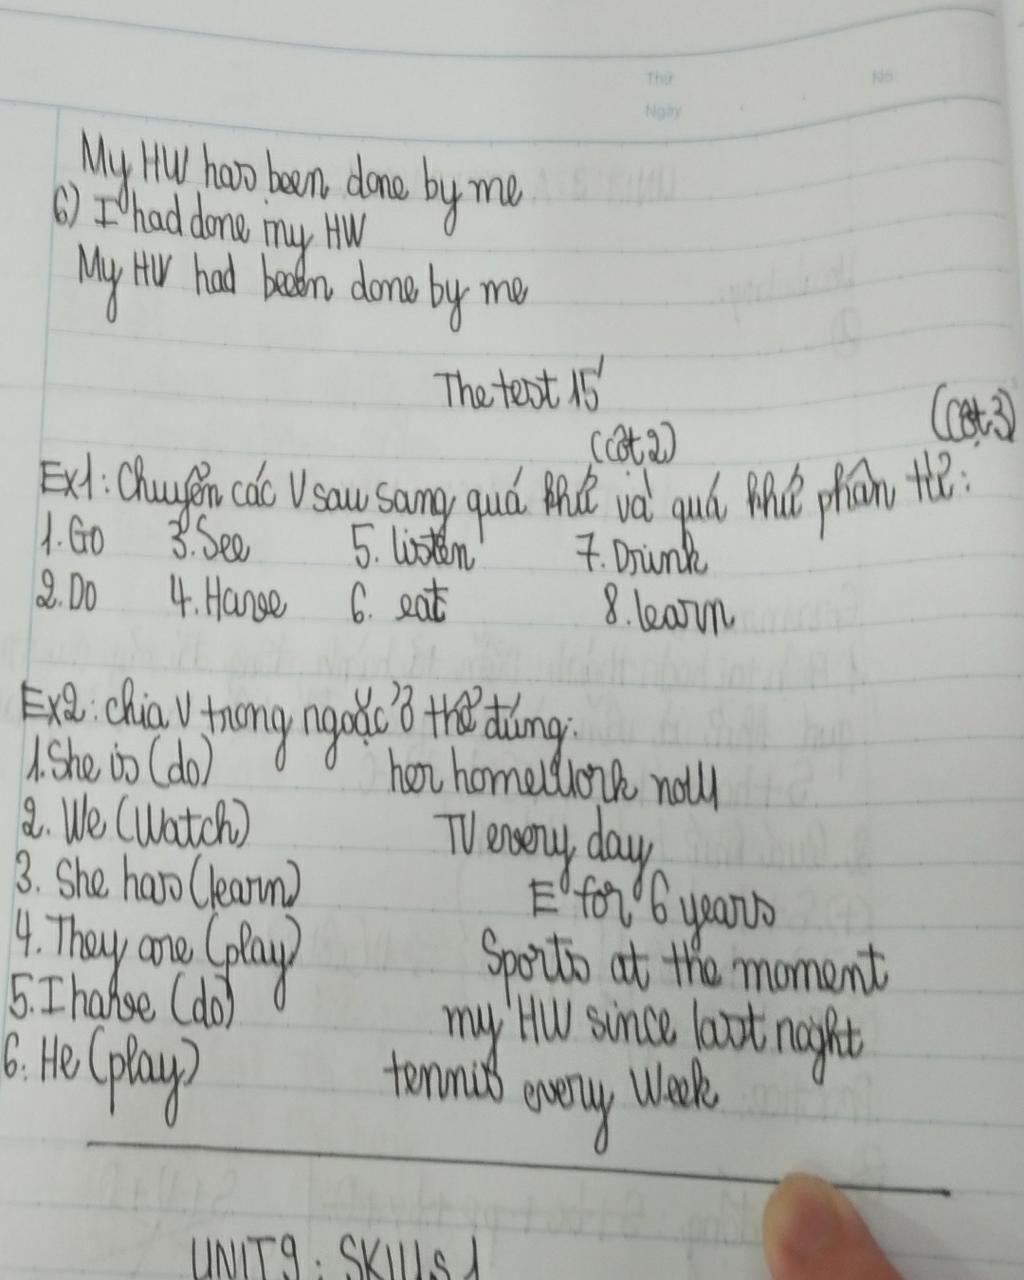 Thứ
No
Ngày
My HW has been done by me
6) I had done my HW
My HW had been done by me
The test 15'
(cột 2) (cột 3)
Ex1: Chuyển các V sau sang quá khứ và quá khứ phân từ:
1. Go 3. See 5. listen 7. Drink
2. Do 4. Have 6. eat 8. learn
Ex2: chia V trong ngoặc ở thể đúng:
1. She is (do) her homework now
2. We (Watch) TV every day
3. She has (learn) E for 6 years
4. They are (play) Sports at the moment
5. I have (do) my HW since last night
6. He (play) tennis every Week
UNIT 9: SKILLS 1